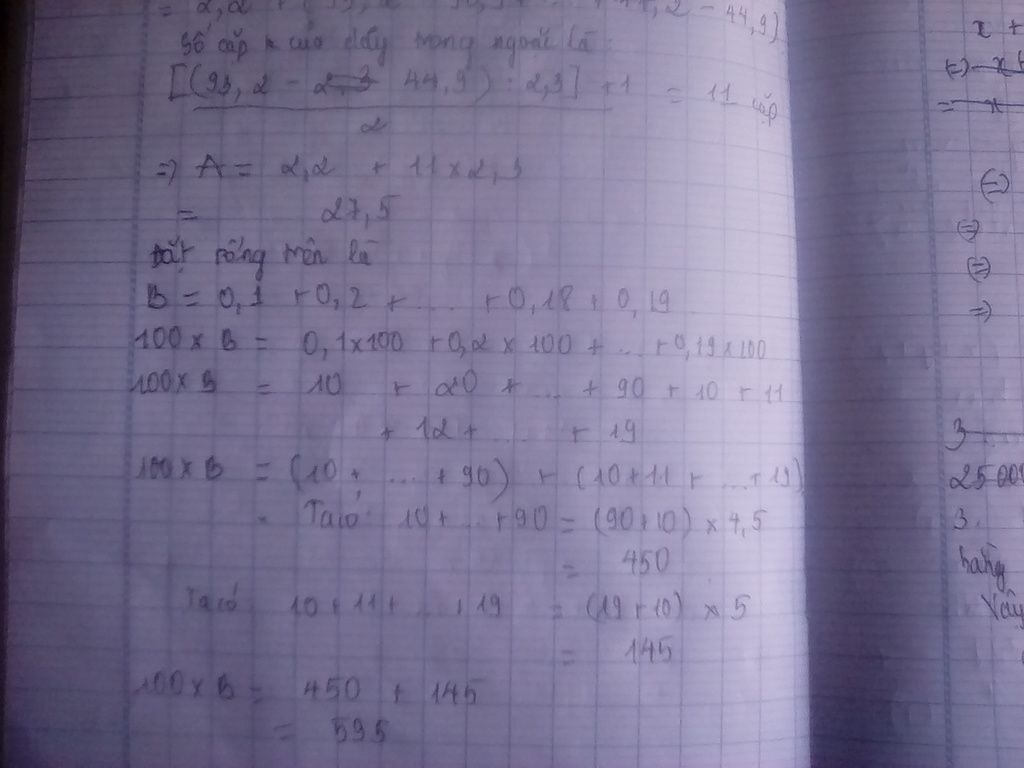 44,9)
Số cặp của dãy trong ngoặc là:
[(93,2 - 44,9) : 2,3] + 1 = 11 cặp
2
=> A = 2,2 + 11 x 2,3
= 27,5
Đặt tổng trên là
B = 0,1 + 0,2 + ... + 0,18 + 0,19
100 x B = 0,1x100 + 0,2 x 100 + ... + 0,19 x 100
100 x B = 10 + 20 + ... + 90 + 10 + 11
+ 12 + ... + 19
100 x B = (10 + ... + 90) + (10 + 11 + ... + 19)
Ta có: 10 + ... + 90 = (90 + 10) x 4,5
= 450
Ta có: 10 + 11 + ... + 19 = (19 + 10) x 5
= 145
100 x B = 450 + 145
= 595
x +
(=)
= x
(=)
(=)
(=)
=>
3
2500
3.
hàng
Vậy